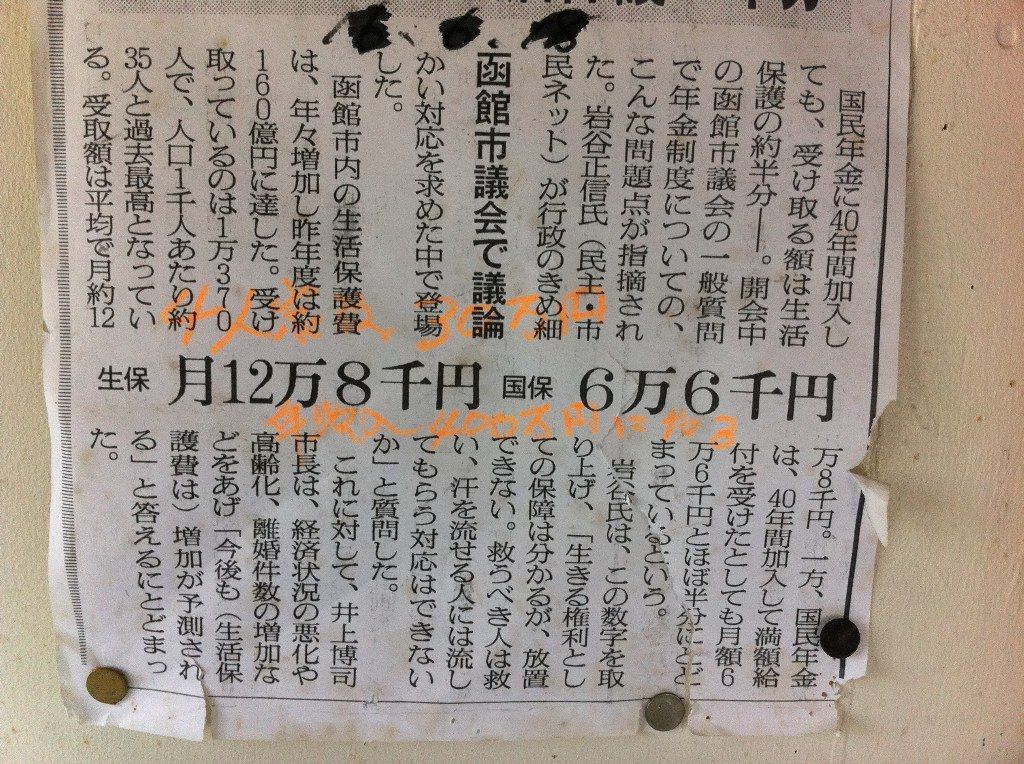 国民年金に40年間加入し
ても、受け取る額は生活
保護の約半分――。開会中
の函館市議会の一般質問
で年金制度についての、
こんな問題点が指摘され
た。岩谷正信氏（民主・市
民ネット）が行政のきめ細
函館市議会で議論
かい対応を求めた中で登場
した。
函館市内の生活保護費
は、年々増加し昨年度は約
160億円に達した。受け
取っているのは1万370
人で、人口1千人あたり約
35人と過去最高となってい
る。受取額は平均で月約12
生保 月12万8千円 国保 6万6千円
万8千円。一方、国民年金
は、40年間加入して満額給
付を受けたとしても月額6
万6千円とほぼ半分にとど
まっているという。
岩谷氏は、この数字を取
り上げ、「生きる権利とし
ての保障は分かるが、放置
できない。救うべき人は救
い、汗を流せる人には流し
てもらう対応はできない
か」と質問した。
これに対して、井上博司
市長は、経済状況の悪化や
高齢化、離婚件数の増加な
どをあげ「今後も（生活保
護費は）増加が予測され
る」と答えるにとどまっ
た。
30万円